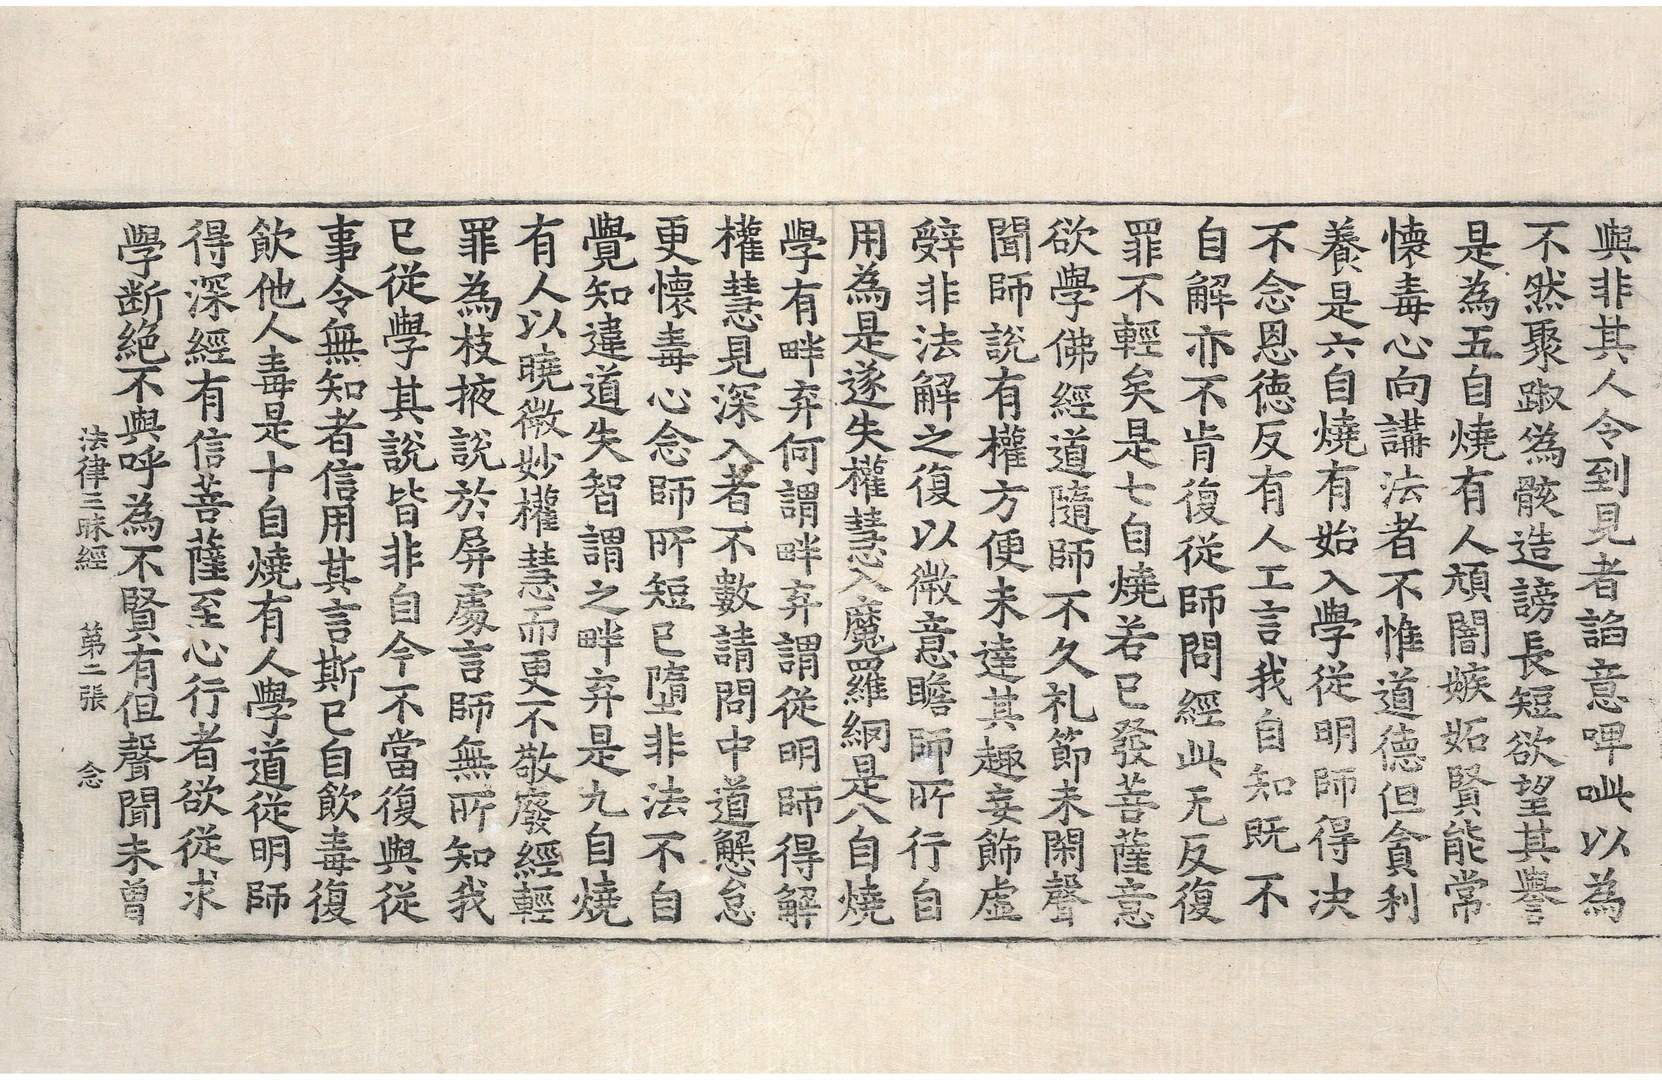 與非其人令到見者諂意呻呰以為
不然聚踧為骸造謗長短欲望其譽
是為五自燒有人頑闇嫉妬賢能常
懷毒心向講法者不惟道德但貪利
養是六自燒有始入學從明師得決
不念恩德反有人工言我自知既不
自解亦不肯復從師問經此无反復
罪不輕矣是七自燒若已發菩薩意
欲學佛經道隨師不久礼節未閑聲
聞師說有權方便未達其趣妄飾虛
辝非法解之復以微意瞻師所行自
用為是遂失權慧入魔羅網是八自燒
學有畔弃何謂畔弃謂從明師得解
權慧見深入者不數請問中道懈怠
更懷毒心念師所短已墮非法不自
覺知違道失智謂之畔弃是九自燒
有人以曉微妙權慧而更不敬廢經輕
罪為枝掖說於屏處言師無所知我
已從學其說皆非自今不當復與從
事令無知者信用其言斯已自飲毒復
飲他人毒是十自燒有人學道從明師
得深經有信菩薩至心行者欲從求
學断絕不與呼為不賢有但聲聞未曾
法律三昧經 第二張 念